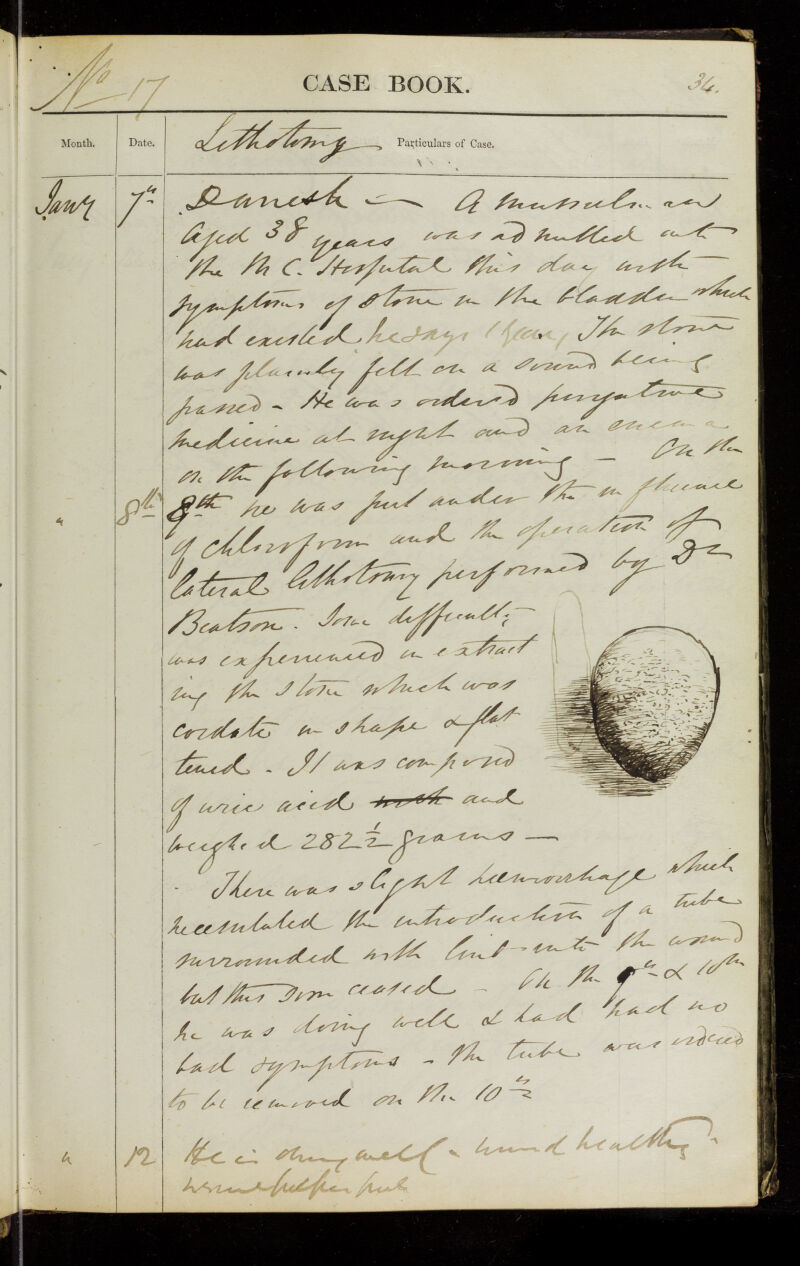 No 17
CASE BOOK.
34.
Month. Date. Lithotomy Particulars of Case.
Jany 7th Danish — A Mussulman
aged 38 years was admitted into
the M C. Hospital this day with
symptoms of stone in the bladder which
had existed he says 1 year, The stone
was plainly felt on a sound being
passed - He was ordered purgative
medicine at night and an enema
on the following morning - On the
" 8th 8th he was put under the influence
of chloroform and the operation of
lateral lithotomy performed by Dr
Beatson. Some difficulty
was experienced in extract
ing the stone which was
cordate in shape & flat
tened - It was composed
of uric acid with and
weighed 282 1/2 grains —
There was slight hemorrhage which
necessitated the introduction of a tube
surrounded with lint into the wound
but this soon ceased - On the 9th & 10th
he was doing well & had had no
bad symptoms - the tube was ordered
to be removed on the 10th
" 12 He is doing well - wound healthy